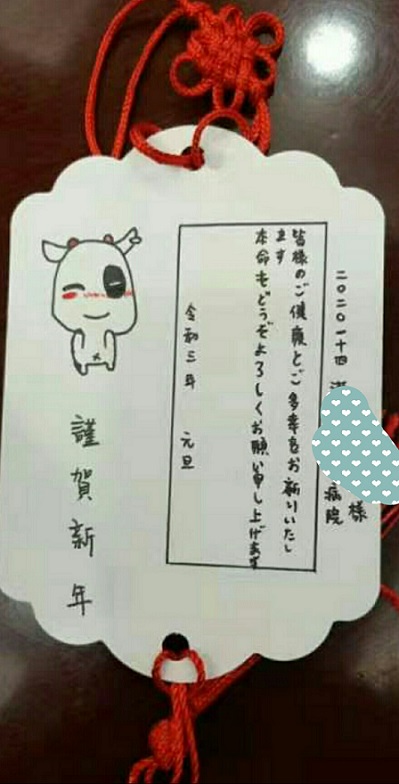 二〇二〇一十四
病院
様
皆様のご健康とご多幸をお祈りいたし
ます
本命もどうぞよろしくお願い申し上げます
令和三年 元旦
謹賀新年